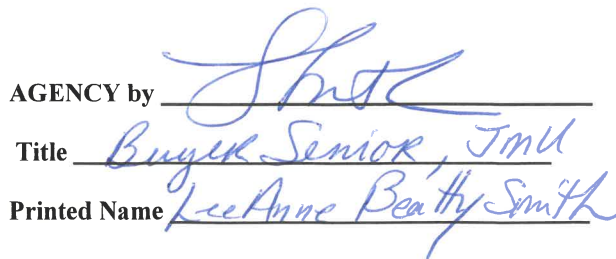 AGENCY by Smith
Title Buyer Senior, JMU
Printed Name LeeAnne Beatty Smith